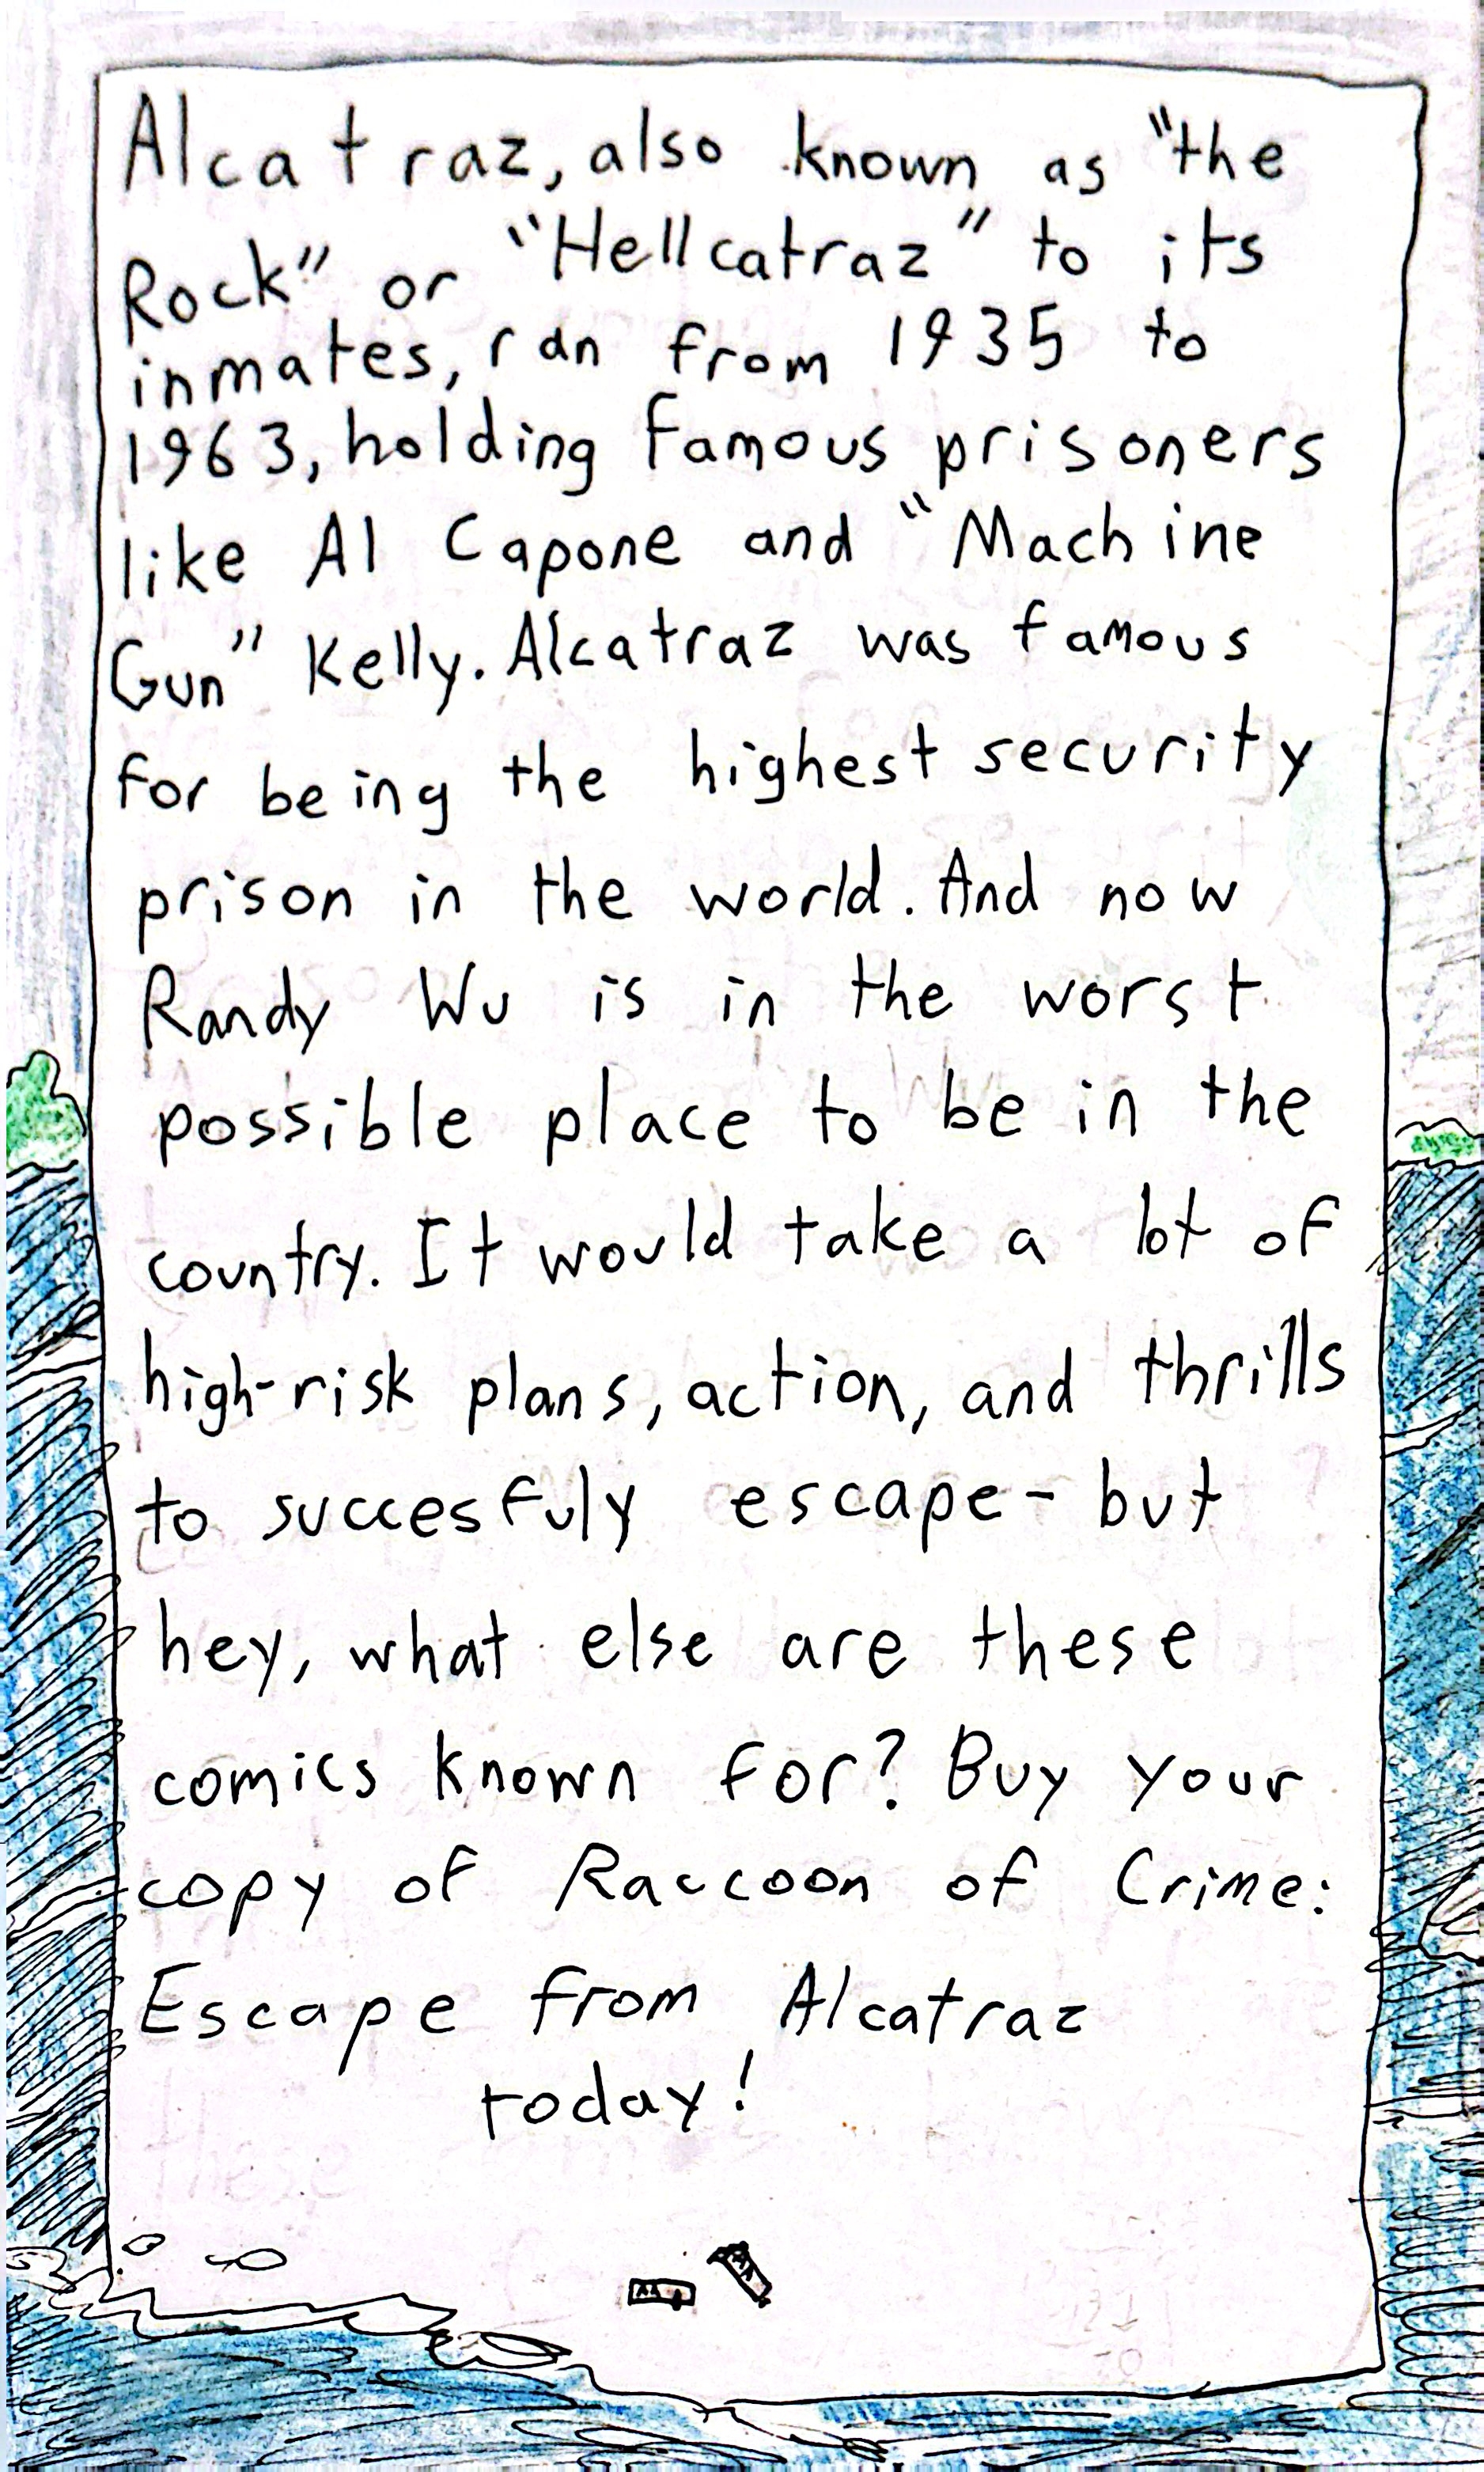 Alcatraz, also known as "the
Rock" or "Hellcatraz" to its
inmates, ran from 1935 to
1963, holding famous prisoners
like Al Capone and "Machine
Gun" Kelly. Alcatraz was famous
for being the highest security
prison in the world. And now
Randy Wu is in the worst
possible place to be in the
country. It would take a lot of
high-risk plans, action, and thrills
to succesfuly escape - but
hey, what else are these
comics known for? Buy your
copy of Raccoon of Crime:
Escape from Alcatraz
today!